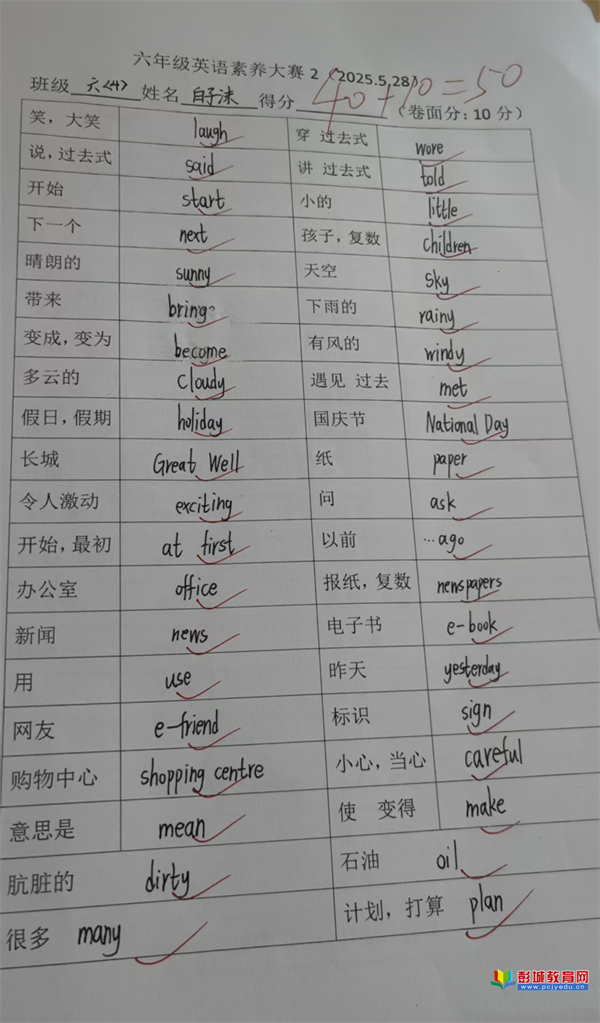 六年级英语素养大赛 2（2025.5.28）
40+10=50
班级 六<4> 姓名 得分 （卷面分：10 分）
笑，大笑 laugh 穿 过去式 wore
说，过去式 said 讲 过去式 told
开始 start 小的 little
下一个 next 孩子，复数 children
晴朗的 sunny 天空 sky
带来 bring 下雨的 rainy
变成，变为 become 有风的 windy
多云的 cloudy 遇见 过去 met
假日，假期 holiday 国庆节 National Day
长城 Great Well 纸 paper
令人激动 exciting 问 ask
开始，最初 at first 以前 …ago
办公室 office 报纸，复数 newspapers
新闻 news 电子书 e-book
用 use 昨天 yesterday
网友 e-friend 标识 sign
购物中心 shopping centre 小心，当心 careful
意思是 mean 使 变得 make
肮脏的 dirty 石油 oil
很多 many 计划，打算 plan
彭城教育网
www.pcjyedu.cn